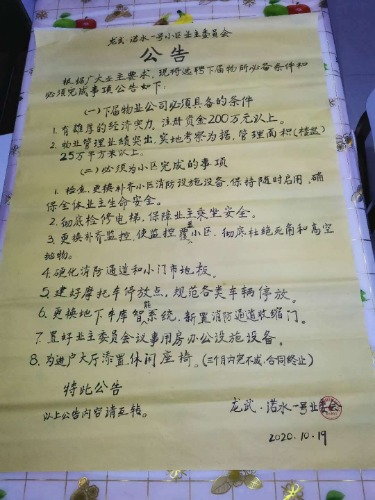 龙武·诺水一号小区业主委员会
公告
根据广大业主要求,现将选聘下届物所必备条件和
必须完成事项公告如下:
(一)下届物业公司必须具备的条件
1.有雄厚的经济实力,注册资金200万元以上。
2.物业管理业绩突出,实地考察为据,管理面积(楼盘)
25万平方米以上。
(二)必须为小区完成的事项
1.检查、更换补齐小区消防设施设备,保持随时启用,确
保全体业主生命安全。
2.彻底检修电梯,保障业主乘坐安全。
3.更换补齐监控,使监控覆盖小区,彻底杜绝死角和高空
抛物。
4.硬化消防通道和小门市地板。
5.建好摩托车停放点,规范各类车辆停放。
6.更换地下车库智能系统,新置消防通道收缩门。
7.置好业主委员会议事用房办公设施设备。
8.为进户大厅添置休闲座椅。(三个月完不成,合同终止)
特此公告
以上公告内容请互转。
龙武·诺水一号业委会
2020.10.19